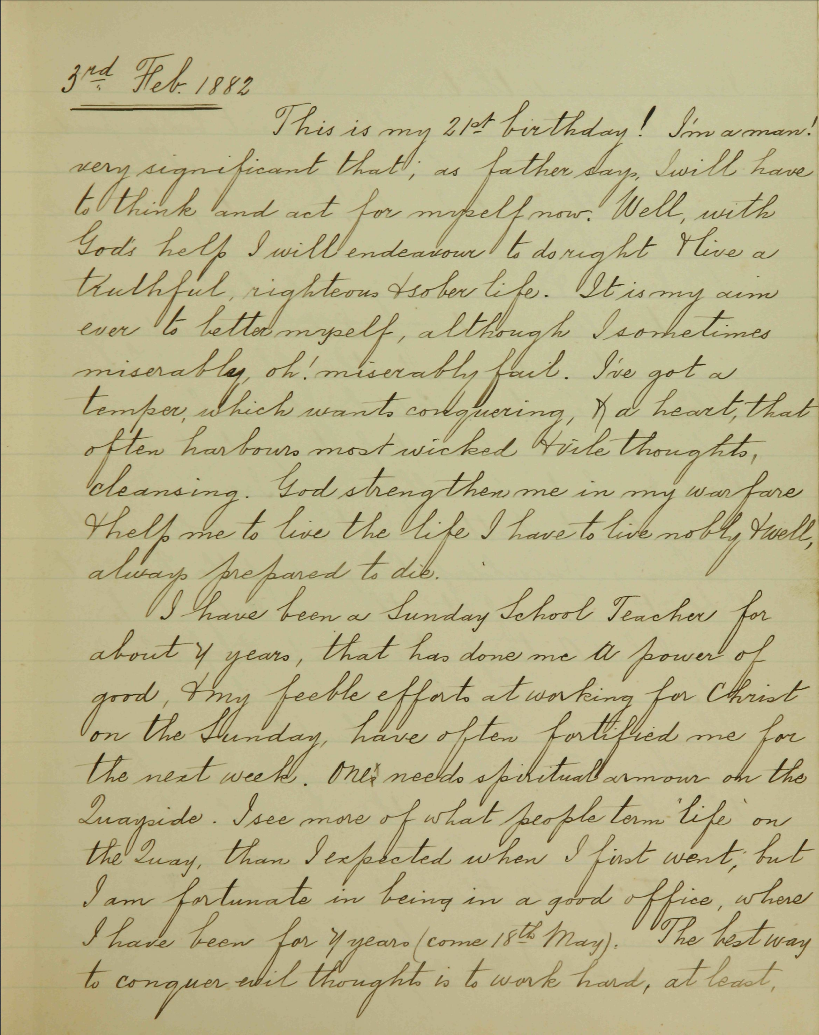 3rd Feb. 1882
This is my 21st birthday! I'm a man!
very significant that; as father say, I will have
to think and act for myself now. Well, with
God's help I will endeavour to do right & live a
truthful, righteous & sober life. It is my aim
ever to better myself, although I sometimes
miserably, oh! miserably fail. I've got a
temper, which wants conquering, & a heart, that
often harbours most wicked & vile thoughts,
cleansing. God strengthen me in my warfare
& help me to live the life I have to live nobly & well,
always prepared to die.
I have been a Sunday School Teacher for
about 4 years, that has done me a power of
good, & my feeble efforts at working for Christ
on the Sunday, have often fortified me for
the next week. One needs spiritual armour on the
Quayside. I see more of what people term 'life' on
the Quay, than I expected when I first went; but
I am fortunate in being in a good office, where
I have been for 4 years (come 18th May). The best way
to conquer evil thoughts is to work hard, at least,